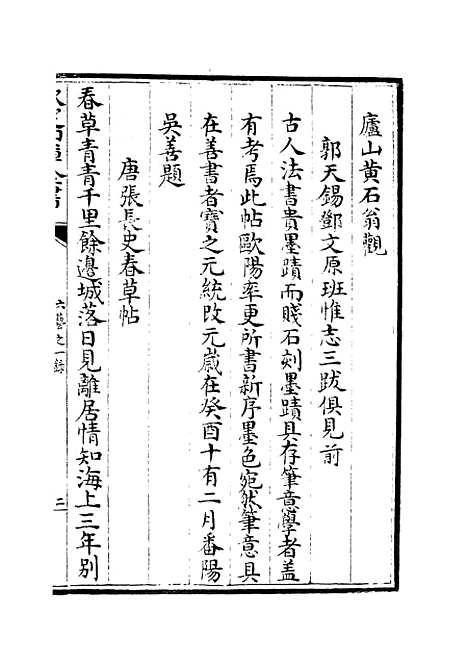 廬山黄石翁觀
郭天錫鄧文原班惟志三跋俱見前
古人法書貴墨蹟而賤石刻墨蹟具存筆意學者蓋
有考焉此帖歐陽率更所書新序墨色宛然筆意具
在善書者寶之元統改元歲在癸酉十有二月番陽
吳善題
唐張長史春草帖
春草青青千里餘邊城落日見離居情知海上三年别
六藝之一錄
三